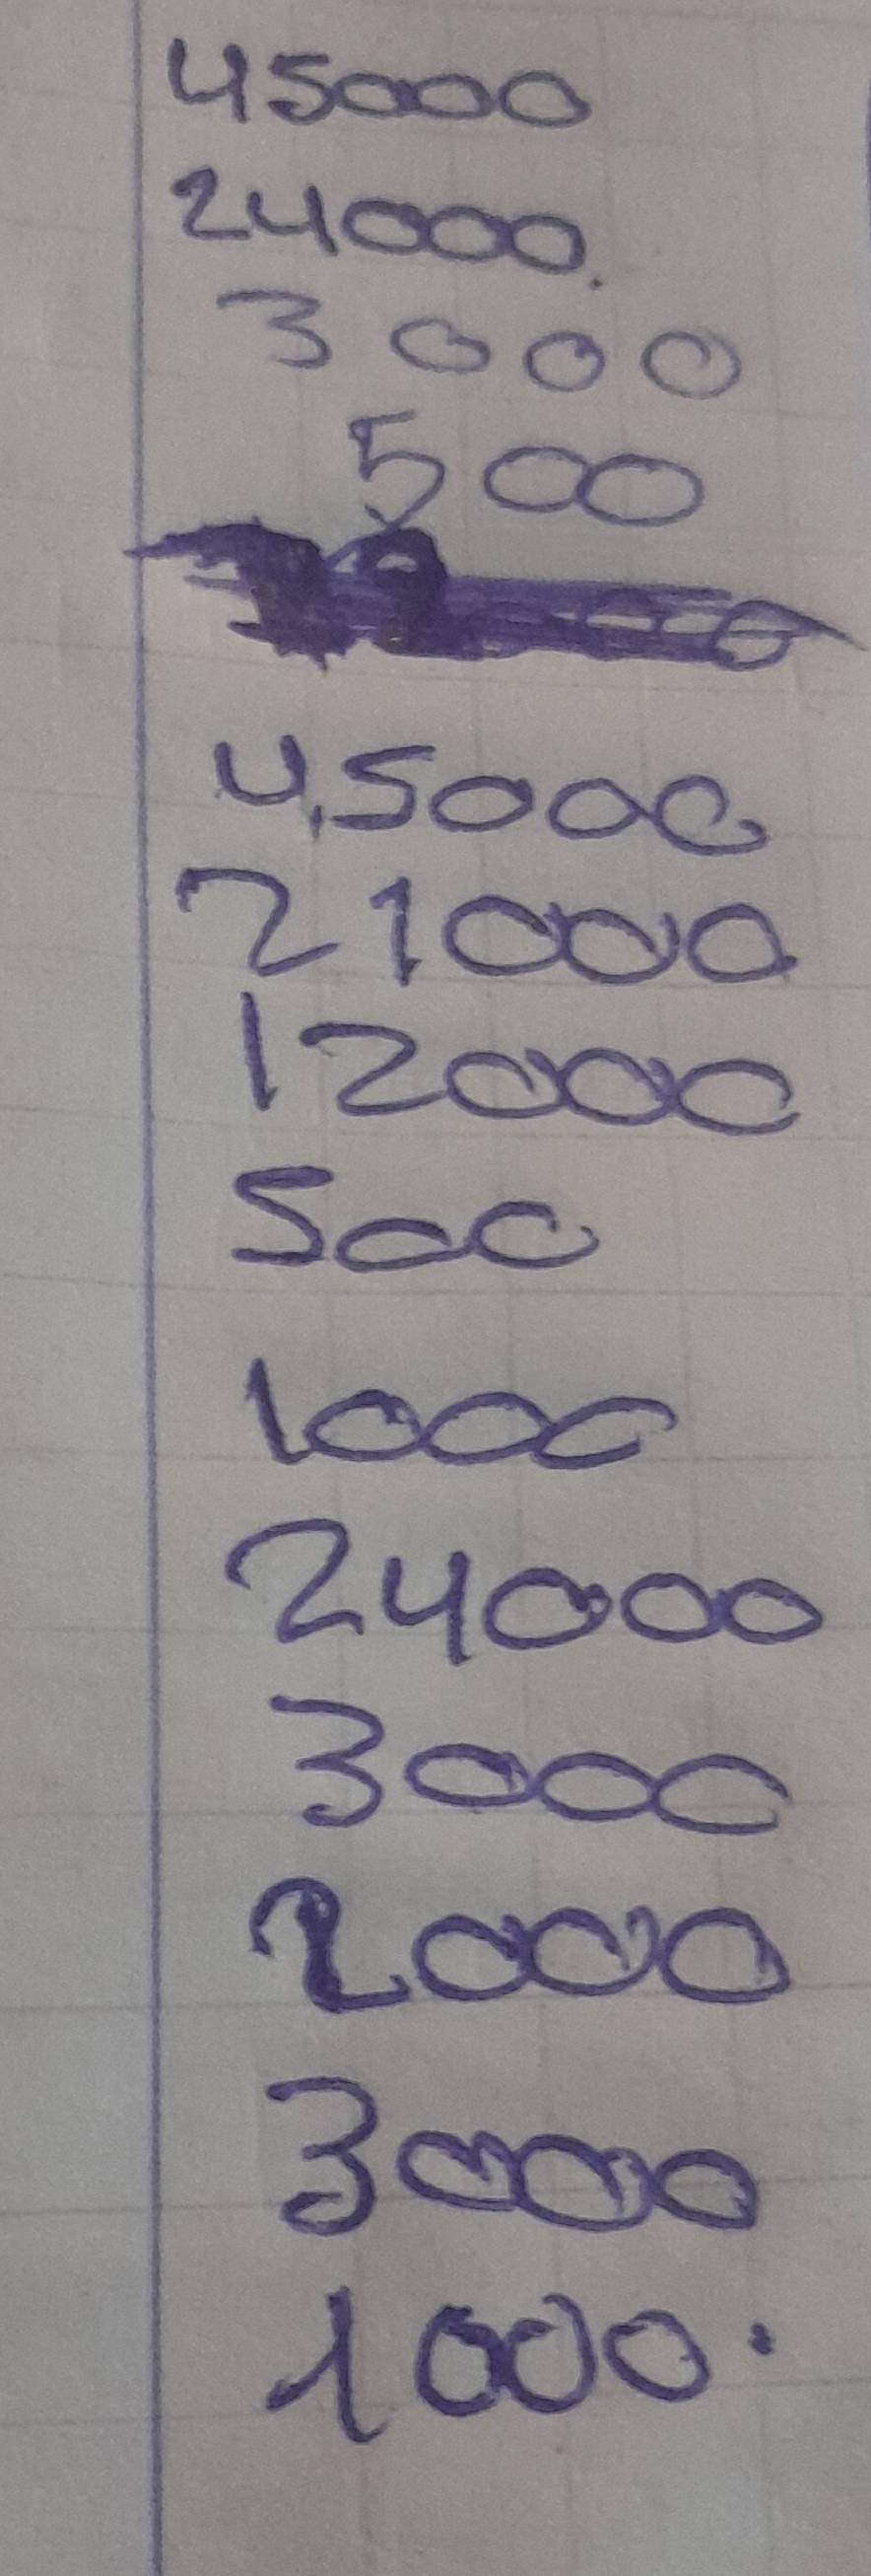 45000
24000.
3000
500
4,5000
21000
12000
500
1000
24000
3000
2000
3000
1000.